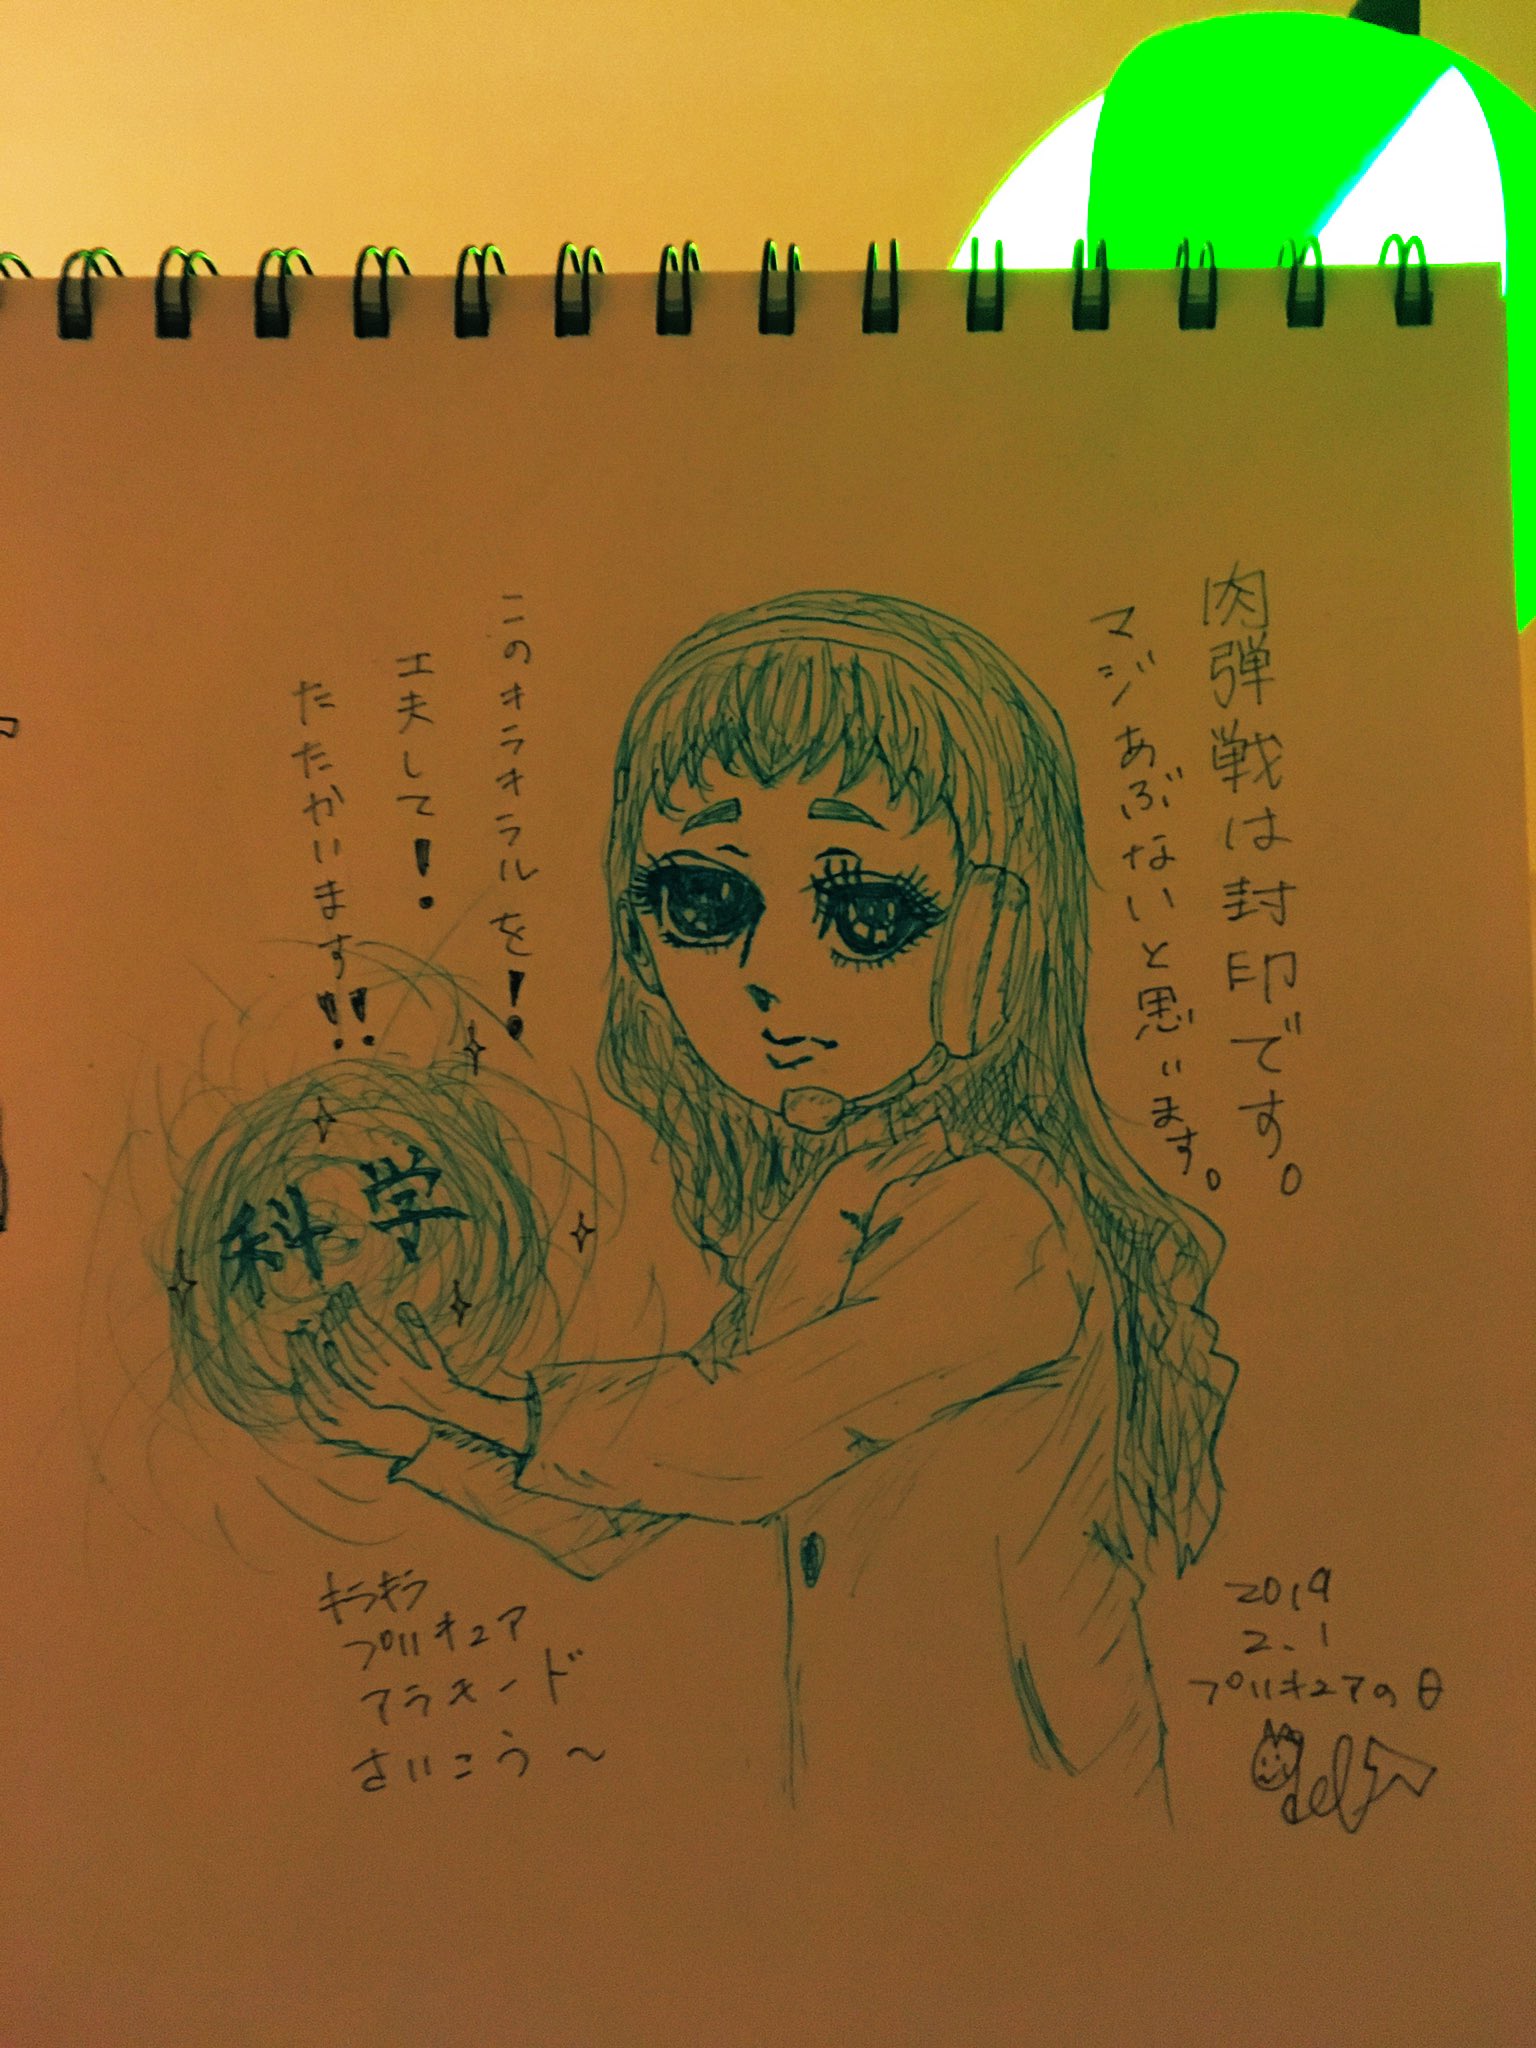 肉弾戦は封印です。
マジあぶないと思います。
このキラキラルを!
工夫して!
たたかいます!!
科学
キラキラ
プリキュア
アラモード
さいこう〜
2019
2.1
プリキュアの日